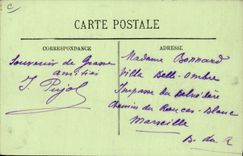 C
CARTE POSTALE
CORRESPONDANCE
ADRESSE
Souvenir de Grasse
amitiés
J. Pujol
Madame Bonnard
Villa Belle-Ombre
Impasse du Belvédère
Chemin du Roucas-Blanc
Marseille
B. du R